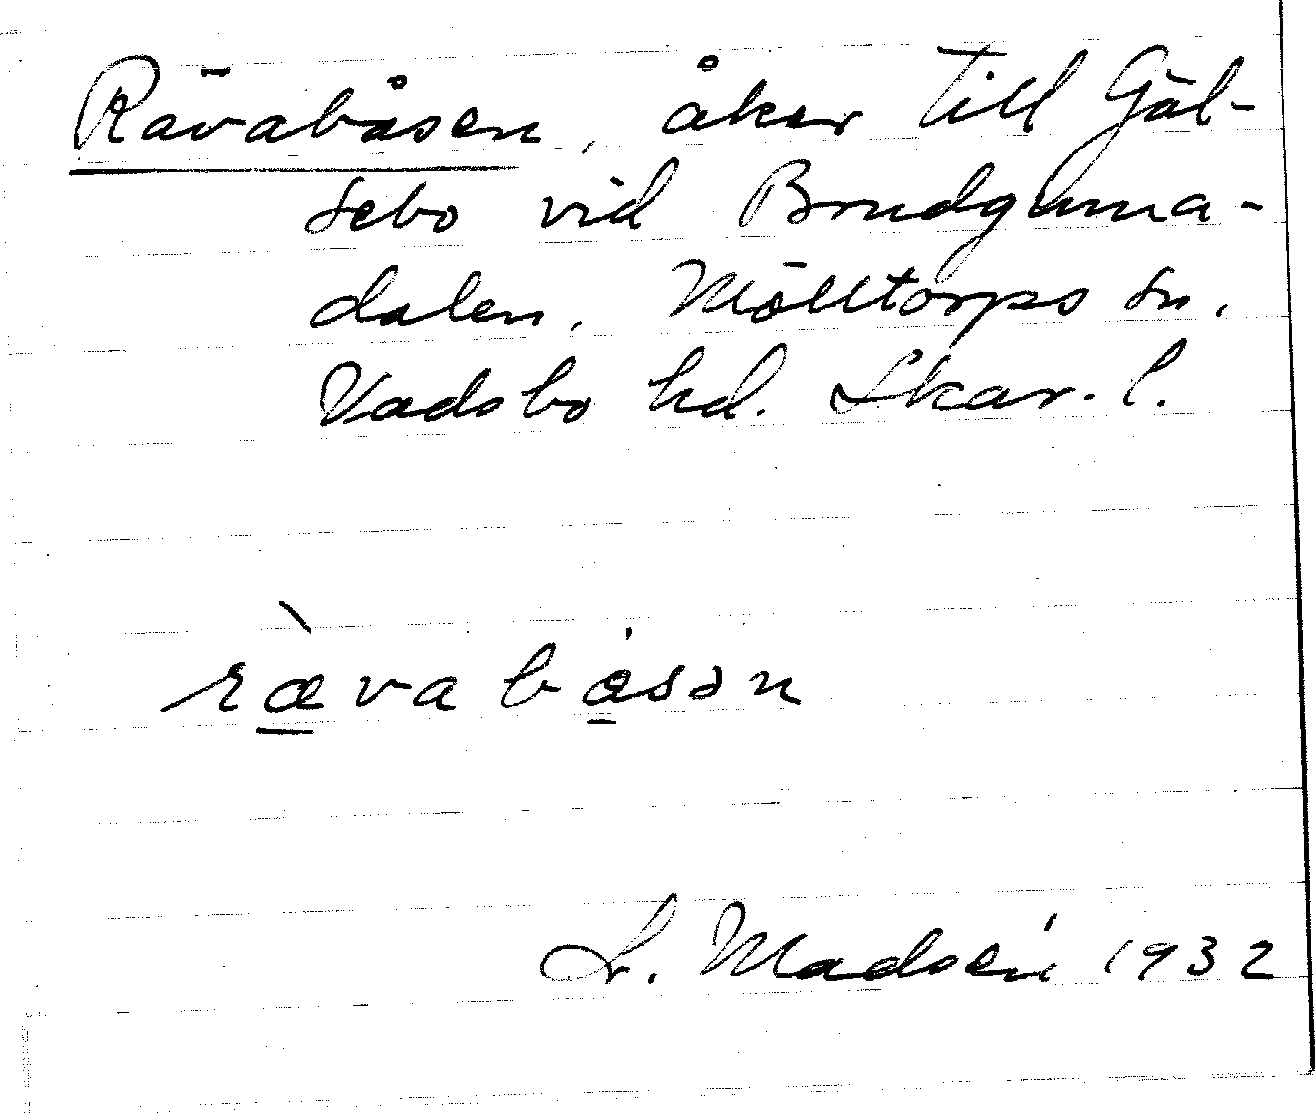 Rävabåsen, åker till Gäl-
sebo vid Brudguma-
dalen. Mölltorps sn.
Vadsbo hd. Skar. l.
ræ̀va båsən
L. Madsén 1932